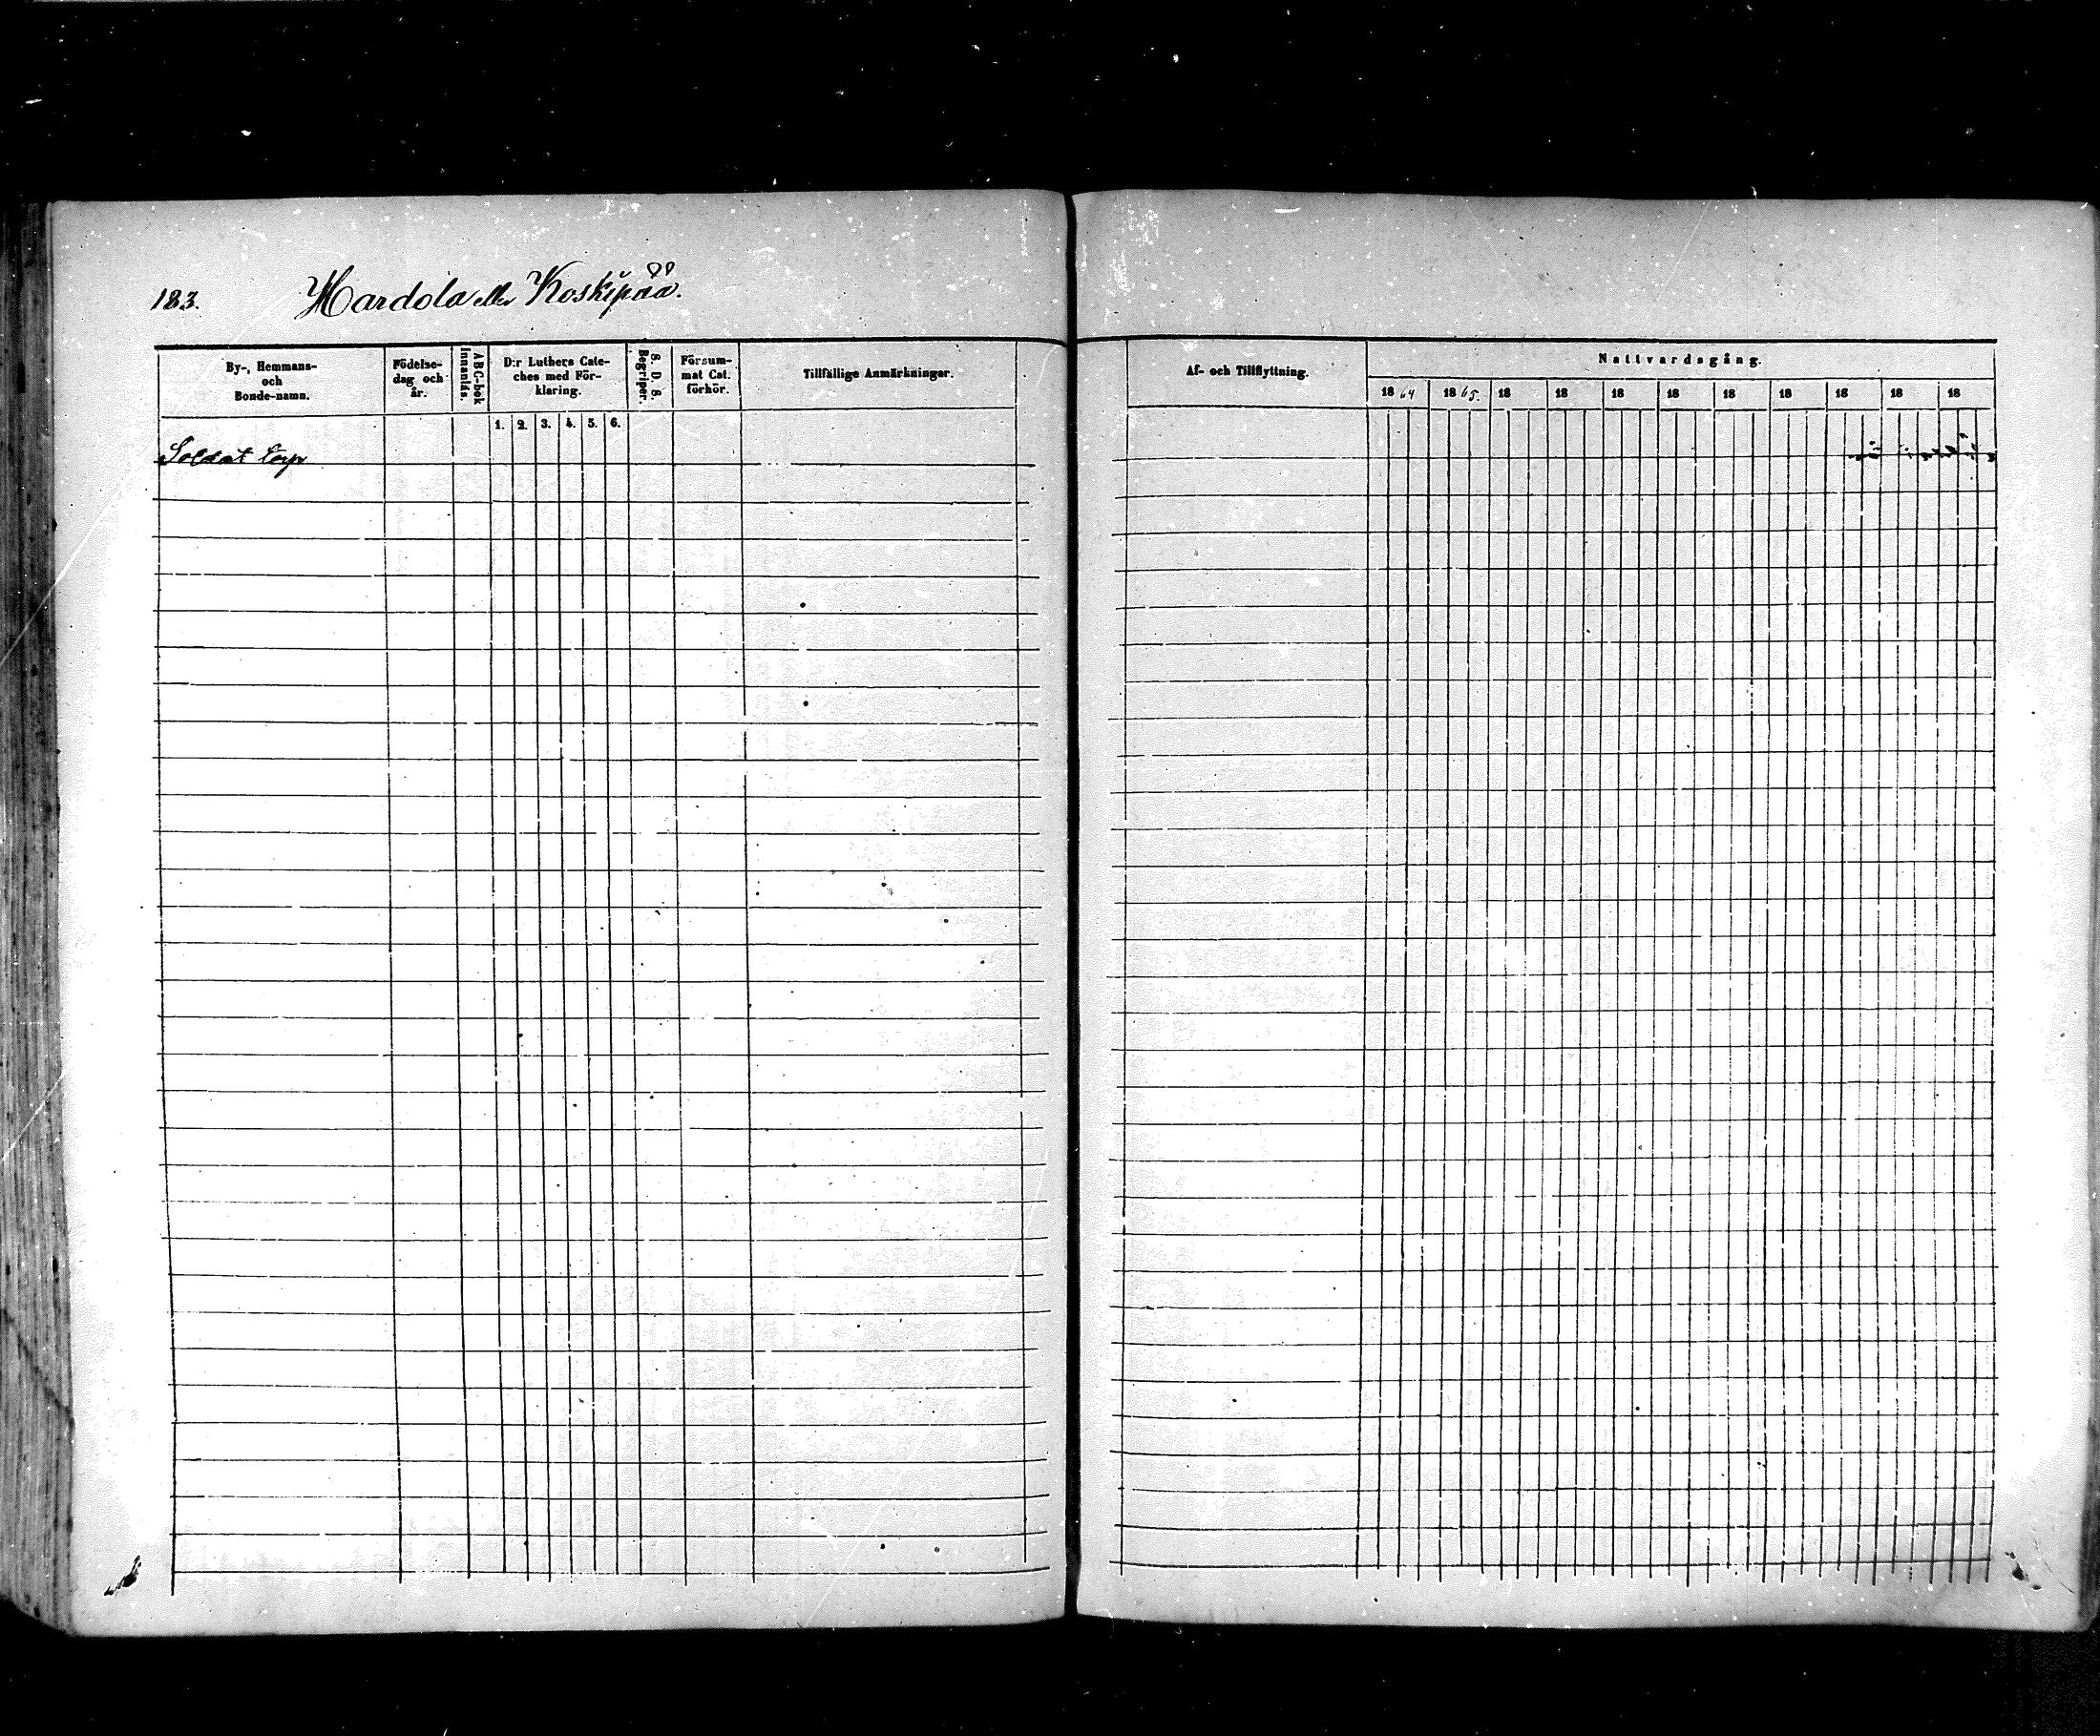 183. Hardola eller Koskipää.
By-, Hemmans-
och
Bonde-namn.
Födelse-
dag och
år.
ABC-bok
Innanläs.
D:r Luthers Cate-
ches med För-
klaring.
1. 2. 3. 4. 5. 6.
S. D. S.
Begriper.
Försum-
mat Cat.
förhör.
Tillfällige Anmärkningar.
Soldat torp
Af- och Tillflyttning.
Nattvardsgång.
1864 1865. 18 18 18 18 18 18 18 18 18